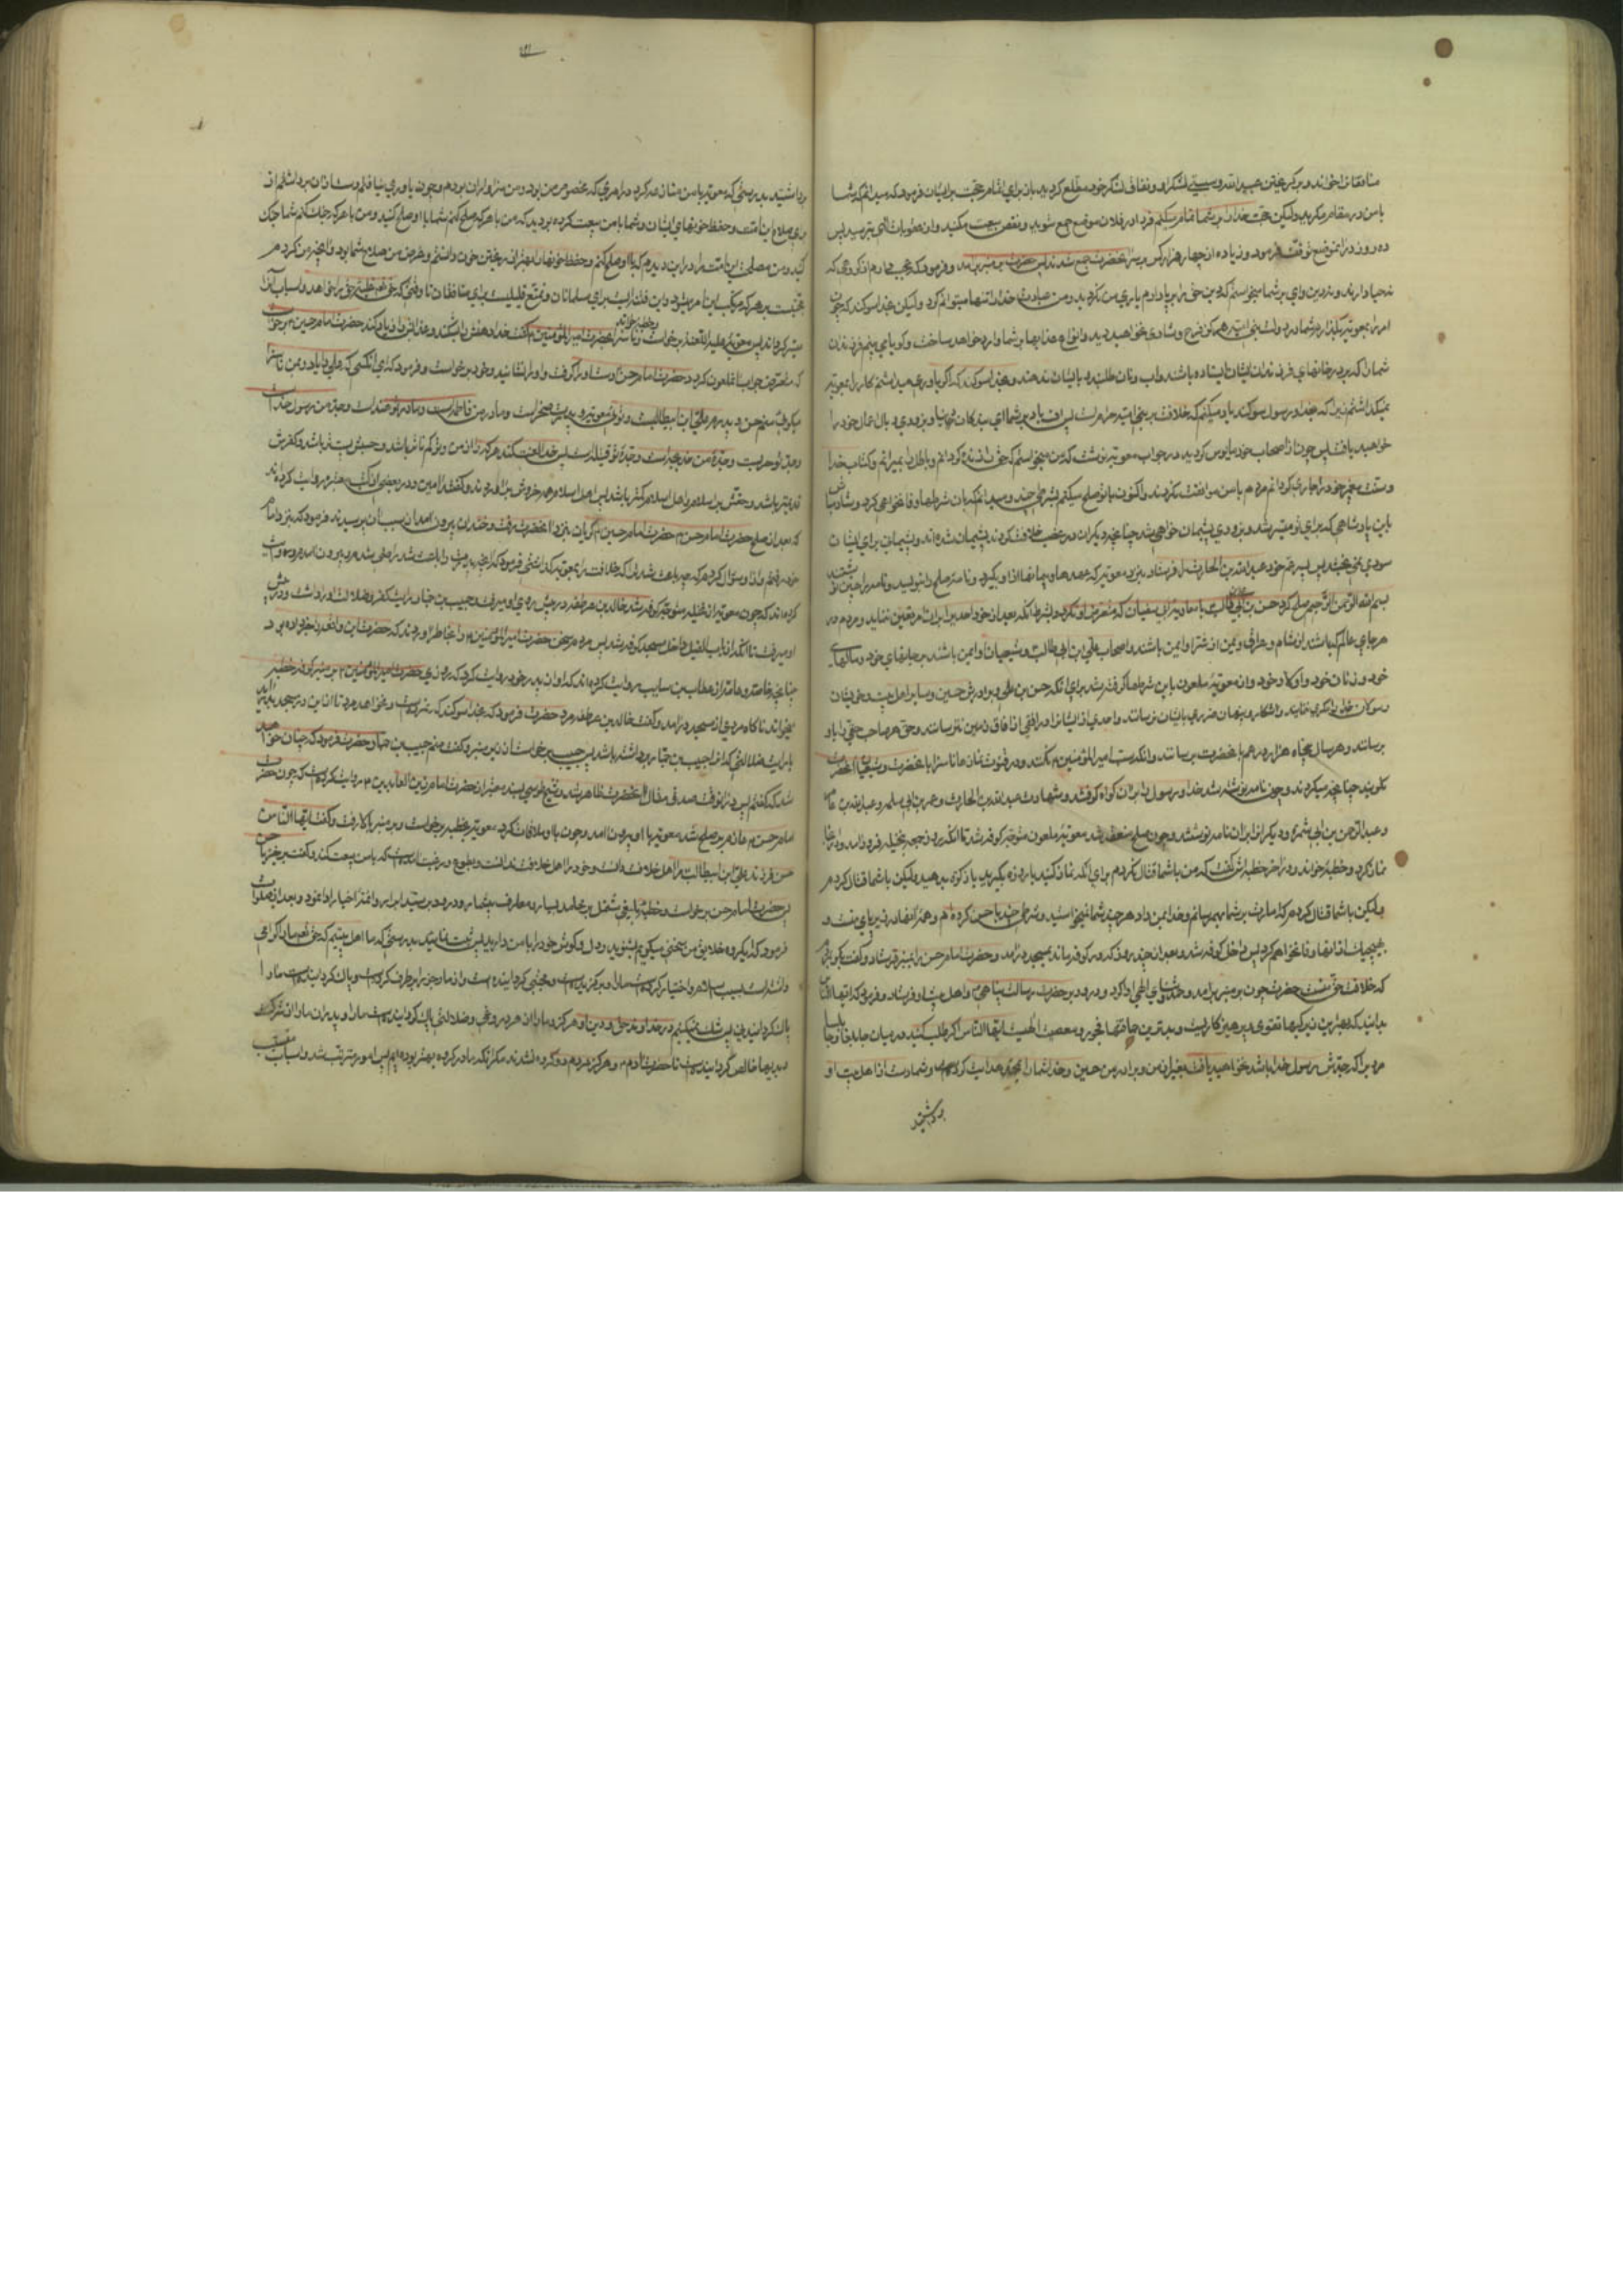 منافقان اخواند و بر کریختن عبیدالله و سستی لشکر او و نفاق لشکر خود مطلع کردید باز برای اتمام حجت بر ایشان فرمود که میدانم که شما
با من در مقام مکرید ولیکن حجت خدا را بر شما تمام میکنم فردا در فلان موضع جمع شوید و نقض بیعت مکنید و از عقوبت الهی بترسید پس
ده روز در انموضع توقف فرمود و زیاده از چهار هزار کس بر سر انحضرت جمع نشدند پس حضرت بر منبر برامد و فرمود که عجب دارم از کروهی که
نه حیا دارند و نه دین وای بر شما
امر را بمعویه بگذارم شما در دولت بنی امیه هرکز فرح و شادی نخواهید دید و انواع عذابها بر شما وارد خواهد ساخت و کویا می بینم فرزندان
شما را که بر در خانهای فرزندان ایشان ایستاده باشند و اب و نان طلبند و بایشان ندهند و بخدا سوکند که اکر یاوری میداشتم کار را بمعویه
نمیکذاشتم زیرا که بخدا و رسول سوکند یاد میکنم که خلافت بر بنی امیه حرام است پس اف باد بر شما ای بندکان دنیا و بزودی وبال اعمال خود را
خواهید یافت پس چون از اصحاب خود مایوس کردید در جواب معویه نوشت که من میخواستم که حق را زنده کردانم و باطل را بمیرانم و کتاب خدا
و سنت پیغمبر خود را جاری کردانم مردم با من موافقت نکردند و اکنون با تو صلح میکنم بشرطی چند و میدانم که بان شرطها وفا نخواهی کرد و شاد مباش
باین پادشاهی که برای تو میسر شد و بزودی پشیمان خواهی شد چنانچه دیکران که غصب خلافت کردند پشیمان شده اند و پشیمانی برای ایشان
سودی نمی بخشد پس پسر عم خود عبدالله بن الحارث را فرستاد بنزد معویه که عهدها و پیمانها از او بکیرد و نامه صلح را بنویسد و نامه را چنین نوشتند
بسم الله الرحمن الرحیم صلح کرد حسن بن علی بن ابی طالب با معاویه بن ابی سفیان که متعرض او نکردد بشرط انکه
هر جای عالم که باشند از شام و عراق و یمن از شر او ایمن باشند و اصحاب علی بن ابی طالب و شیعیان او ایمن باشند بر جانهای خود و مالهای
خود و زنان خود و اولاد خود و از معویه ملعون باین شرطها کرفته شد برای انکه حسن بن علی و برادرش حسین و سایر اهل بیت و خویشان
رسول خدا مکری نیندیشد و اشکار و پنهان ضرری بایشان نرساند و احدی از ایشان را در افقی از افاق زمین نترساند و حق هر صاحب حقی را باو
برساند و هر سال پنجاه هزار درهم با حضرت برساند و انکه سب امیر المؤمنین ع نکنند و در قنوت نماز ناسزا با حضرت و شیعیان انحضرت
نکویند چنانچه میکردند و چون نامه نوشته شد خدا و رسول را بر ان کواه کرفتند و شهادت عبدالله بن الحارث و عمرو بن ابی سلمه و عبدالله بن عامر
و عبدالرحمن بن ابی سمره و دیکران را بر ان نامه نوشتند و چون صلح منعقد شد معویه ملعون متوجه کوفه شد تا انکه روز جمعه بنخیله فرود امد و در انجا
نماز کرد و خطبه خواند و در اخر خطبه اش کفت که من با شما قتال نکردم برای انکه نماز کنید یا روزه بکیرید یا زکوة بدهید ولیکن با شما قتال کردم
ولیکن با شما قتال کردم که امارت بر شما بهم رسانم و خدا بمن داد هر چند شما نمیخواستید و شرطی چند با حسن کرده ام و همه انها در زیر پای منست و
بهیچیک از انها وفا نخواهم کرد پس داخل کوفه شد و بعد از چند روز که در کوفه ماند بمسجد درآمد و حضرت امام حسن را بمنبر فرستاد و کفت بکو برای
که خلافت حق منست حضرت چون بر منبر برامد حمد و ثنای الهی ادا کرد و درود بر حضرت رسالت پناهی و اهل بیت او فرستاد و فرمود که ایها الناس
بدانید که بهترین زیرکیها تقوی و پرهیز کاریست و بدترین حماقتها فجور و معصیت الهیست ایها الناس اکر طلب کنید در میان جابلقا و جابلسا
مردیرا که جدش رسول خدا باشد نخواهید یافت بغیر از من و برادر من حسین و خدا شما را بمحمد هدایت کرد و شما دست از اهل بیت او
برداشتید
برداشتید بدرستی که معویه با من منازعه کرد در امری که مخصوص من بود و من سزاوار ان بودم و چون یاوری نیافتم دست از ان برداشتم از
برای صلاح این امت و حفظ خونهای ایشان و شما با من بیعت کرده بودید که من با هر که صلح کنم شما با او صلح کنید و من با هر که جنک کنم شما جنک
کنید و من مصلحت این امت را در این دیدم که با او صلح کنم و حفظ خونها را بهتر از ریختن خون دانستم و غرض من صلاح شما بود و انچه من کردم
حجتیست بر هر که مرتکب این امر میشود و این فتنه ایست برای مسلمانان و تمتع قلیلیست برای منافقان تا وقتی که حق تعالی غلبه حق را خواهد و اسباب انرا
میسر کرداند پس معویه علیه اللعنه برخواست و خطبه خواند و ناسزا بحضرت امیر المؤمنین ع کفت
که متعرض جواب ان ملعون کردد حضرت امام حسن دست او را کرفت و او را نشانید و خود برخواست و فرمود که ای انکسی که علی را یاد و بمن ناسزا
میکوئی منم حسن و پدرم علی ابن ابیطالبست و توئی معویه و پدرت صخر است و مادر من فاطمه است و مادر تو هند است و جد من رسول خداست
و جد تو حرب است و جده من خدیجه است و جده تو فتیله است پس خدا لعنت کند هر که از من و تو کم نام تر باشد و حسبش پست تر باشد و کفرش
قدیمتر باشد و حقش بر اسلام و اهل اسلام کمتر باشد پس اهل اسلام همه خروش براوردند و کفتند امین و در بعضی از کتب معتبره روایت کرده اند
که بعد از صلح حضرت امام حسن ع حضرت امام حسین ع کریان بنزد انحضرت رفت و خندان بیرون امد از سبب ان پرسیدند فرمود که بنزد امام
خود رفتم و از او سؤال کردم که چه باعث شد ترا که خلافت را بمعویه کذاشتی فرمود که انچه پدرت را باعث شد راضی شدم و بیرون امدم و روایت
کرده اند که چون معویه از نخیله متوجه کوفه شد خالد بن عرفطه در پیش روی او میرفت و حبیب بن حماد رایت کفر و ضلالت او را داشت
او میرفت تا انکه از باب الفیل داخل مسجد کوفه شد پس مردم سخن حضرت امیر المؤمنین ع را بخاطر اوردند که حضرت این واقعه را خبر داده بود
چنانچه خاصه و عامه از عطاء بن سایب روایت کرده اند که او از پدر خود روایت کرد که روزی حضرت امیر المؤمنین ع بر منبر کوفه خطبه
میخواند ناکاه مردی از مسجد درامد و کفت خالد بن عرفطه مرد حضرت فرمود که بخدا سوکند که نمرده است و نخواهد مرد تا از این در مسجد بدراید
با رایت ضلالتی که انرا حبیب بن حماد برداشته باشد پس حبیب برخواست از زیر منبر و کفت منم حبیب بن حماد و حضرت فرمود که چنان خواهد
شد که کفتم پس در انوقت صدق مقال انحضرت ظاهر شد و شیخ طوسی بسند معتبر از حضرت امام زین العابدین ع روایت کرده است که چون حضرت
امام حسن ع عازم بر صلح شد معویه با او بیرون امد و چون با او ملاقات کرد معویه بخطبه برخواست و بر منبر بالا رفت و کفت ایها الناس
حسن فرزند علی ابن ابیطالب مرا اهل خلافت دانست و خود را اهل خلافت ندانست و بطوع و رغبت امده است که با من بیعت کند و کفت برخیز یا حسن
پس حضرت امام حسن برخواست و خطبه بلیغی مشتمل بر محامد بسیار و معارف بیشمار و درود بر سید ابرار و ائمه اخیار ادا نمود و بعد از صلوات
فرمود که ای کروه خلایق من سخنی میکویم بشنوید و دل و کوش خود را با من دارید پس بدرستی که ما اهل بیتیم که حق تعالی ما را کرامی
داشته است بسبب اسلام و اختیار کرده است ما را و برکزیده است و مجتبی کردانیده است و از ما رجس را برطرف کرده است و پاک کردانیده است ما را
پاک کردانیدنی پس شک نمیکنیم در خدا و نه در حق و دین او هرکز و ما را از هر دروغی و ضلالتی پاک کردانیده است ما را و پدران ما را از شرک
و بدیها خالص کردانیده است تا حضرت ادم ع و هرکز مردم دو کروه نشدند مکر انکه ما در کروه بهتر بوده ایم پس امور مترتب شد و اسباب